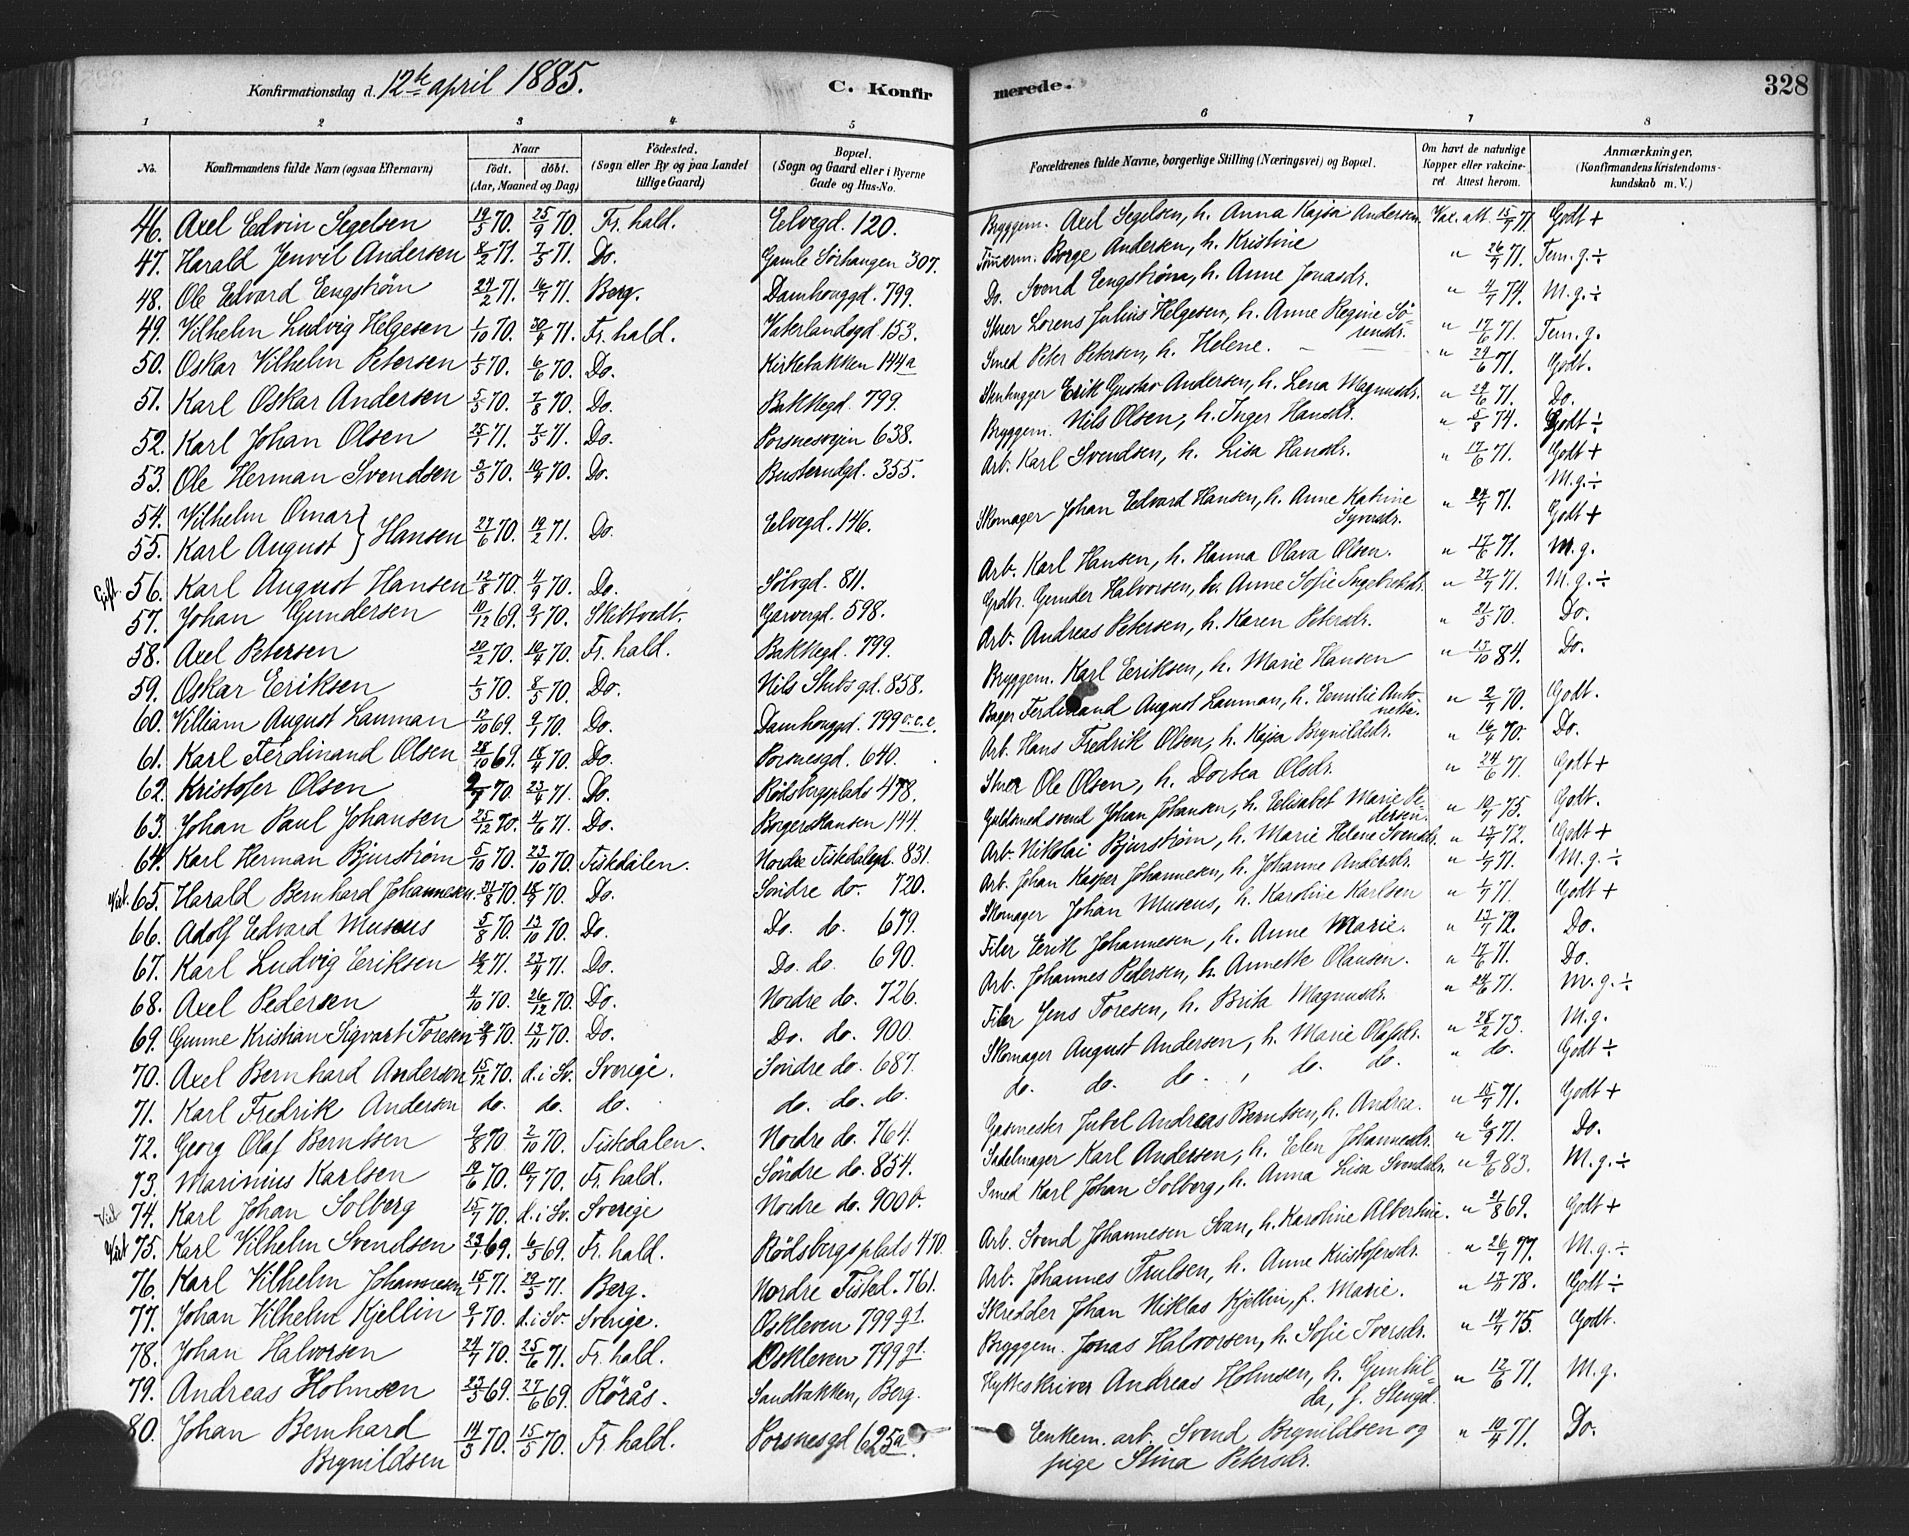 Konfirmationsdag d. 12te april 1885. C. Konfirmerede. 328
1 2 3 4 5 6 7 8
No. Konfirmandens fulde Navn (ogsaa Efternavn) Naar født. døbt. (Aar, Maaned og Dag) Fødested. (Sogn eller By og paa Landet tillige Gaard) Bopæl. (Sogn og Gaard eller i Byerne Gade og Hus-No. Forældrenes fulde Navne, borgerlige Stilling (Næringsvei) og Bopæl. Om havt de naturlige Kopper eller vakcineret Attest herom. Anmærkninger. (Konfirmandens Kristendomskundskab m. V.)
46. Axel Edvin Segelsen 19/5 70. 25/9 70. Fr. hald. Elvegd. 120. Bryggem. Axel Segelsen, h. Anna Kajsa Andersen. Vax. att. 15/7 71. Godt +
47. Harald Jenvil Andersen 8/2 71. 7/5 71. Do. Gamle Sørhaugen 307. Tømmerm. Borge Andersen, h. Kristine " 26/7 71. Tem. g. ÷
48. Ole Edvard Engstrøm 24/2 71. 16/7 71. Berg. Damhouggd. 799. Do. Svend Engstrøm, h. Anne Jonasdr. " 4/7 74. M. g. ÷
49. Vilhelm Ludvig Helgesen 1/10 70. 30/4 71. Fr. hald. Vaterlandsgd. 153. Skrer Lorens Julius Helgesen, h. Anne Regine Sörensdr. " 17/6 71. Tem. g.
50. Oskar Vilhelm Petersen 1/5 70. 6/6 70. Do. Kirkebakken 144a Smed Peter Petersen, h. Helene. " 24/6 71. Godt.
51. Karl Oskar Andersen 5/5 70. 7/8 70. Do. Bakkegd. 799. Stenhugger Erik Gustav Andersen, h. Lena Magnusdr. " 24/6 71. Do.
52. Karl Johan Olsen 25/1 71. 7/5 71. Do. Porsnesvejen 638. Bryggem. Nils Olsen, h. Inger Hansdr. " 5/8 74. Godt ÷
53. Ole Herman Svendsen 3/3 70. 10/4 70. Do. Busterudgd. 355. Arb. Karl Svendsen, h. Lisa Hansdr. " 17/6 71. Godt +
54. Vilhelm Omar } Hansen 27/6 70. 19/2 71. Do. Elvegd. 146. Skomager Johan Edvard Hansen, h. Anne Katrine Syversdr. " 24/7 71. M. g. ÷
55. Karl August } Godt +
Gift. 56. Karl August Hansen 12/8 70. 4/9 70. Do. Sølvgd. 811. Arb. Karl Hansen, h. Hanna Olava Olsen. " 17/6 71. M. g.
57. Johan Gundersen 10/12 69. 9/7 70. Skebtvedt. Garvergd. 598. Grdbr. Gunder Halvorsen, h. Anne Sofie Ingebretsdr. " 27/7 71. M. g. ÷
58. Axel Petersen 20/2 70. 10/4 70. Fr. hald. Bakkegd. 799. Arb. Andreas Petersen, h. Karen Petersdr. " 21/5 70. Do.
59. Oskar Eriksen 1/3 70. 8/5 70. Do. Nils Stubs gd. 858. Bryggem. Karl Eriksen, h. Marie Hansen " 13/10 84. Do.
60. Villiam August Lauman 17/10 69. 9/1 70. Do. Damhouggd. 799 v.c.e. Bager Ferdinand August Lauman, h. Emilie Antonette. " 2/7 70. Godt.
61. Karl Ferdinand Olsen 28/10 69. 18/4 70. Do. Porsnesgd. 640. Arb. Hans Fredrik Olsen, h. Kajsa Brynildsdr. " 16/7 70. Do.
62. Kristofer Olsen 9/7 70. 23/4 71. Do. Rödsbergplads 478. Skrer Ole Olsen, h. Dortea Olsdr. " 24/6 71. Godt +
63. Johan Paul Johansen 25/12 70. 4/6 71. Do. BorgerHansen 144. Guldsmedsvend Johan Johansen, h. Elisabet Marie Pedersen. " 10/7 75. Godt.
64. Karl Herman Bjurstrøm 5/10 70. 23/10 70. Tistedalen. Nordre Tistedalsgd. 831. Arb. Nikolai Bjurstrøm, h. Marie Helene Svensdr. " 13/7 72. Godt +
Vid. 65. Harald Bernhard Johannesen 21/8 70. 18/9 70. Do. Söndre do. 720. Arb. Johan Kasper Johannesen, h. Johanne Andersdr. " 1/7 71. M. g. ÷
66. Adolf Edvard Museus 5/8 70. 13/10 70. Do. Do. do. 679. Skomager Johan Museus, h. Karoline Karlsen " 1/7 71. Godt +
67. Karl Ludvig Eriksen 14/2 71. 23/4 71. Do. Do. do. 690. Filer Erik Johannesen, h. Anne Marie. " 13/7 72. Do.
68. Axel Pedersen 4/10 70. 26/12 70. Do. Nordre do. 726. Arb. Johannes Pedersen, h. Annette Olausen. " 17/6 71. Do.
69. Gunne Kristian Sigvart Toresen 70. 13/11 70. Do. Do. do. 900. Filer Jens Toresen, h. Brita Magnusdr. " 24/6 71. M. g. ÷
70. Axel Bernhard Anderson 15/12 70. d. i Sv. Sverige. Söndre do. 687. Skomager August Andersen, h. Marie Olafsdr. " 28/2 73. M. g.
71. Karl Fredrik Andersen do. do. do. do. do. do. do. do. do. do. do. " do. Godt ÷
72. Georg Olaf Berntsen 9/8 70. 2/10 70. Tistedalen. Nordre do. 764. Gasmester Jubel Andreas Berntsen, h. Andrea. " 15/7 71. Godt +
73. Marinius Karlsen 19/6 70. 10/7 70. Fr. hald. Söndre do. 854. Sadelmager Karl Andersen, h. Elen Johannesdr. " 6/9 71. Do.
Vid. 74. Karl Johan Solberg 15/7 70. d. i Sv. Sverige Nordre do. 900 b. Smed Karl Johan Solberg, h. Anna Lisa Svendsdr. " 9/6 83. M. g. ÷
Vid. 75. Karl Vilhelm Svendsen 23/1 69. 6/5 69. Fr. hald. Rödsbergsplads 470. Arb. Svend Johannesen Svan, h. Karoline Albertine. " 21/8 69. Godt +
76. Karl Vilhelm Johannesen 15/1 71. 29/5 71. Berg. Nordre Tisted. 761. Arb. Johannes Trulsen, h. Anne Kristofersdr. " 26/7 77. M. g. ÷
77. Johan Vilhelm Kjellin 9/1 70. d. i Sv. Sverige. Oskleven 799 g1. Skrædder Johan Niklas Kjellin, f. Marie. " 13/7 78. Godt ÷
78. Johan Halvorsen 24/7 70. 25/6 71. Fr. hald. Oskleven 799 g1. Bryggem. Jonas Halvorsen, h. Sofie Iversdr. " 14/7 75. Godt.
79. Andreas Holmsen 23/3 69. 27/6 69. Rörås. Sandbakken, Berg. Hytteskriver Andreas Holmsen, h. Gunhilda, f. Stengd. " 12/6 71. M. g.
80. Johan Bernhard Brynildsen 14/3 70. 15/5 70. Fr. hald. Porsnesgd 625a. Enkem. arb. Svend Brynildsen og pige Stina Petersdr. " 10/4 71. Do.